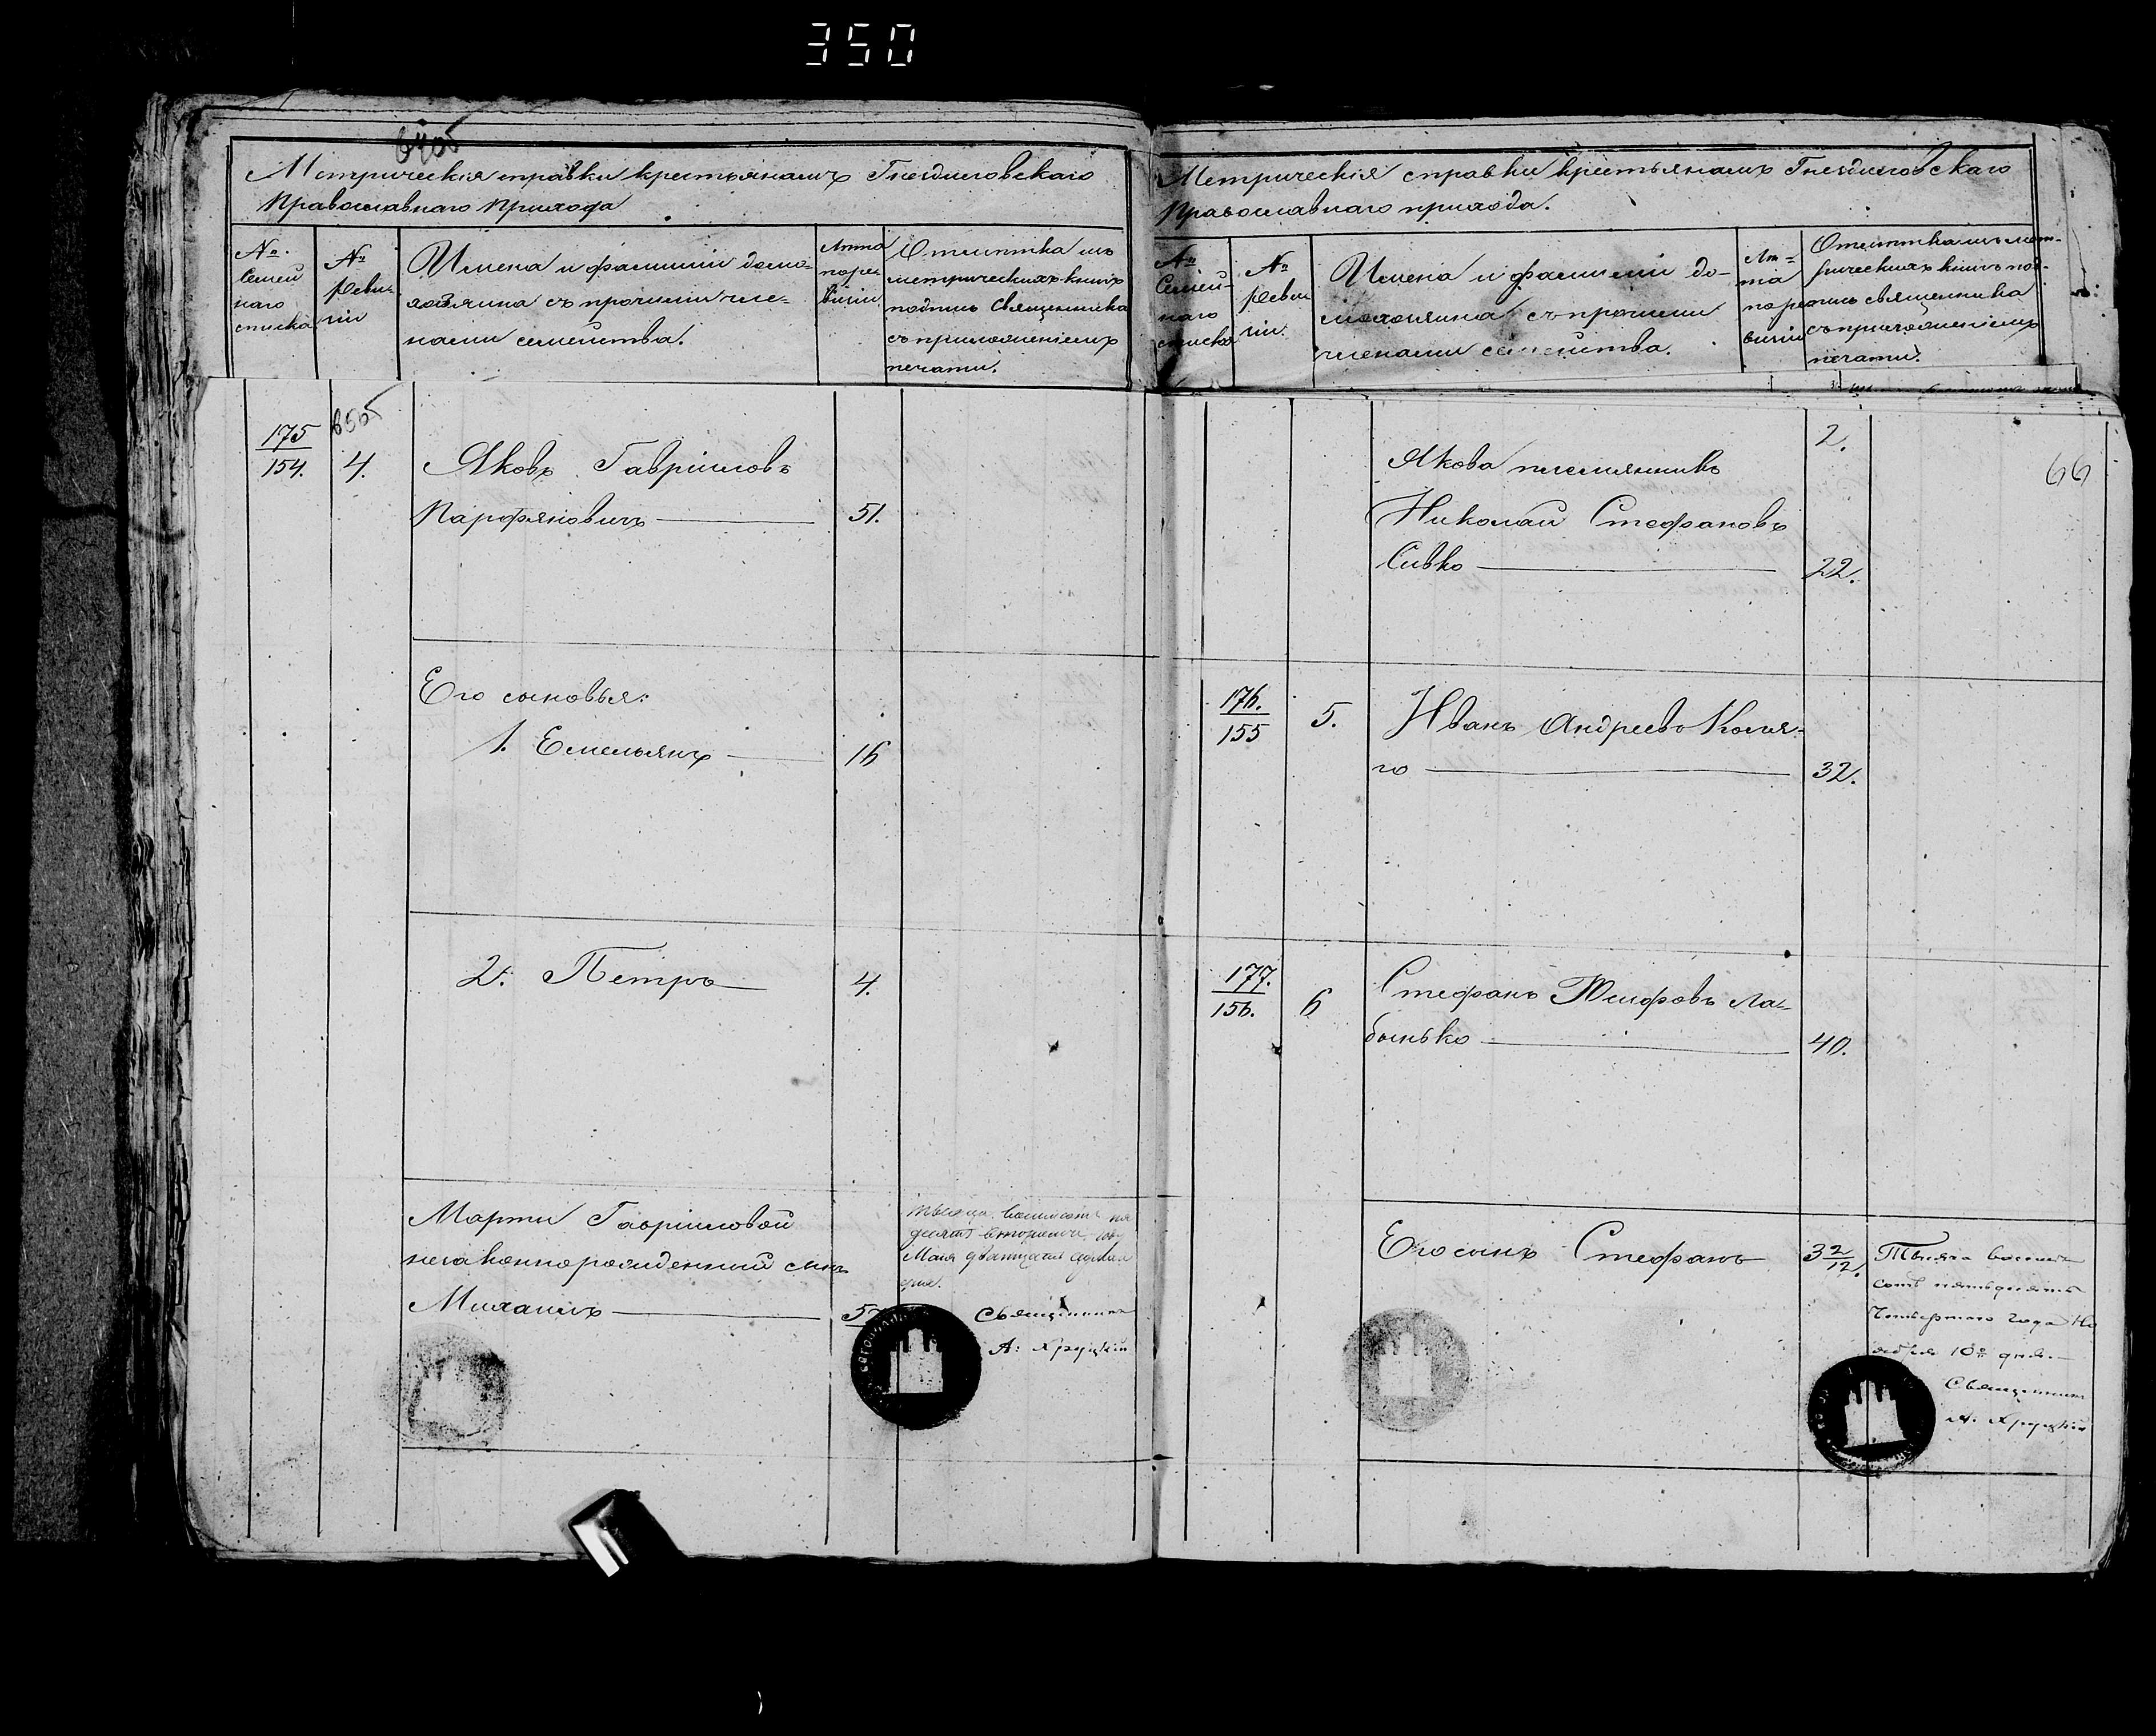 350
64об
Метрическія справки крестьянамъ Гнездиловскаго
Православнаго Прихода
№
Семей
наго
списка
№
Реви-
зіи
Имена и фамиліи домо-
хозяина съ прочими чле-
нами семейства.
Лѣта
по ре-
визіи
Отмѣтка изъ
метрическихъ книгъ
подпись Священника
съ приложеніемъ
печати.
175
154.
65об
4.
Яковъ Гавріиловъ
Парфяновичъ
51.
Его сыновья:
1. Емельянъ
16
2. Петръ
4.
Марти Гавріиловой
незаконнорожденный сынъ
Михаилъ
5
Тысяца восимсотъ пя
десятъ втораго
Маія двятцатаго седмаго
дня.
Священникъ
А: Хруцкій
Метрическія справки крестьянамъ Гнездиловскаго
Православнаго прихода.
№
Семей-
наго
списка
№
Реви
зіи.
Имена и фамиліи до-
мохозяина съ прочими
членами семейства.
Лѣ-
та
по ре
визіи
Отмѣтка изъ мет-
рическихъ книгъ под-
пись священника
съ приложеніемъ
печати.
66
Якова племянникъ
2.
Николай Стефановъ
Сивко
22.
176.
155
5.
Иванъ Андреевъ Коля-
го
32.
177.
156.
6
Стефанъ Юсифовъ Ла-
бынько
40.
Его сынъ Стефанъ
3 2/12.
Тысяча восемь
сотъ пятьдесятъ
Четвертаго года Но
ября 10го дня.
Священникъ
А. Хруцкій